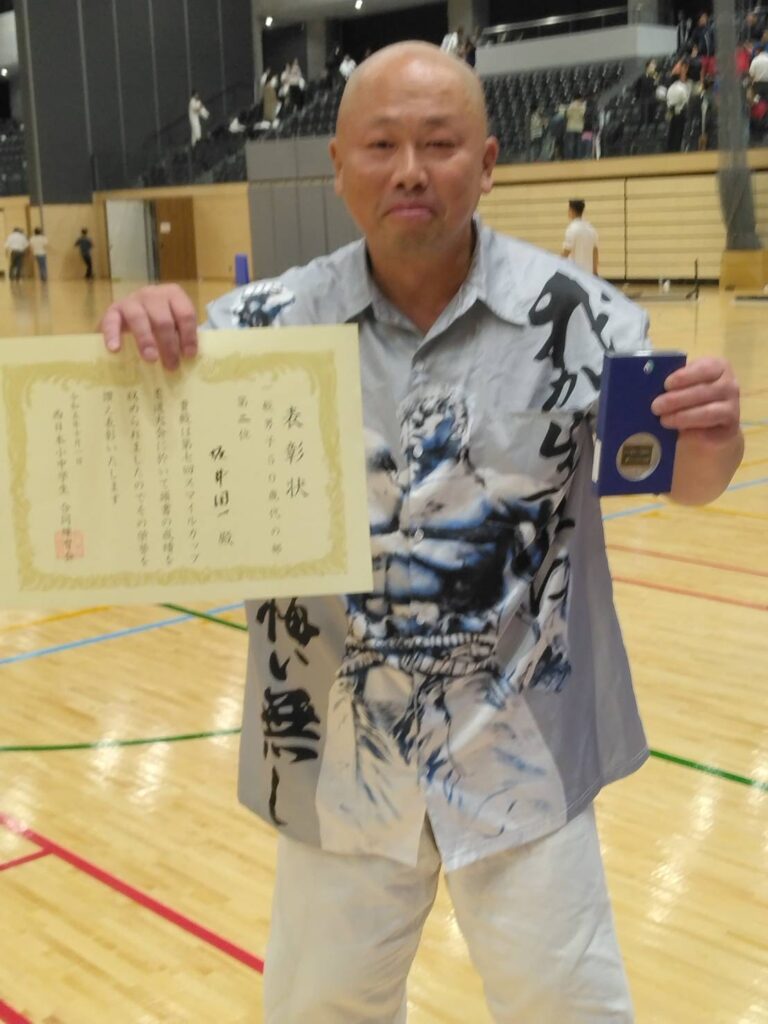 表彰状
一般男子50歳代の部
第三位
殿
貴殿は第七回スマイルカップ
柔道大会に於いて頭書の成績を
収められましたのでその栄誉を
讃え表彰いたします
西日本小中学生 合同練習会
我が生涯に
悔い無し